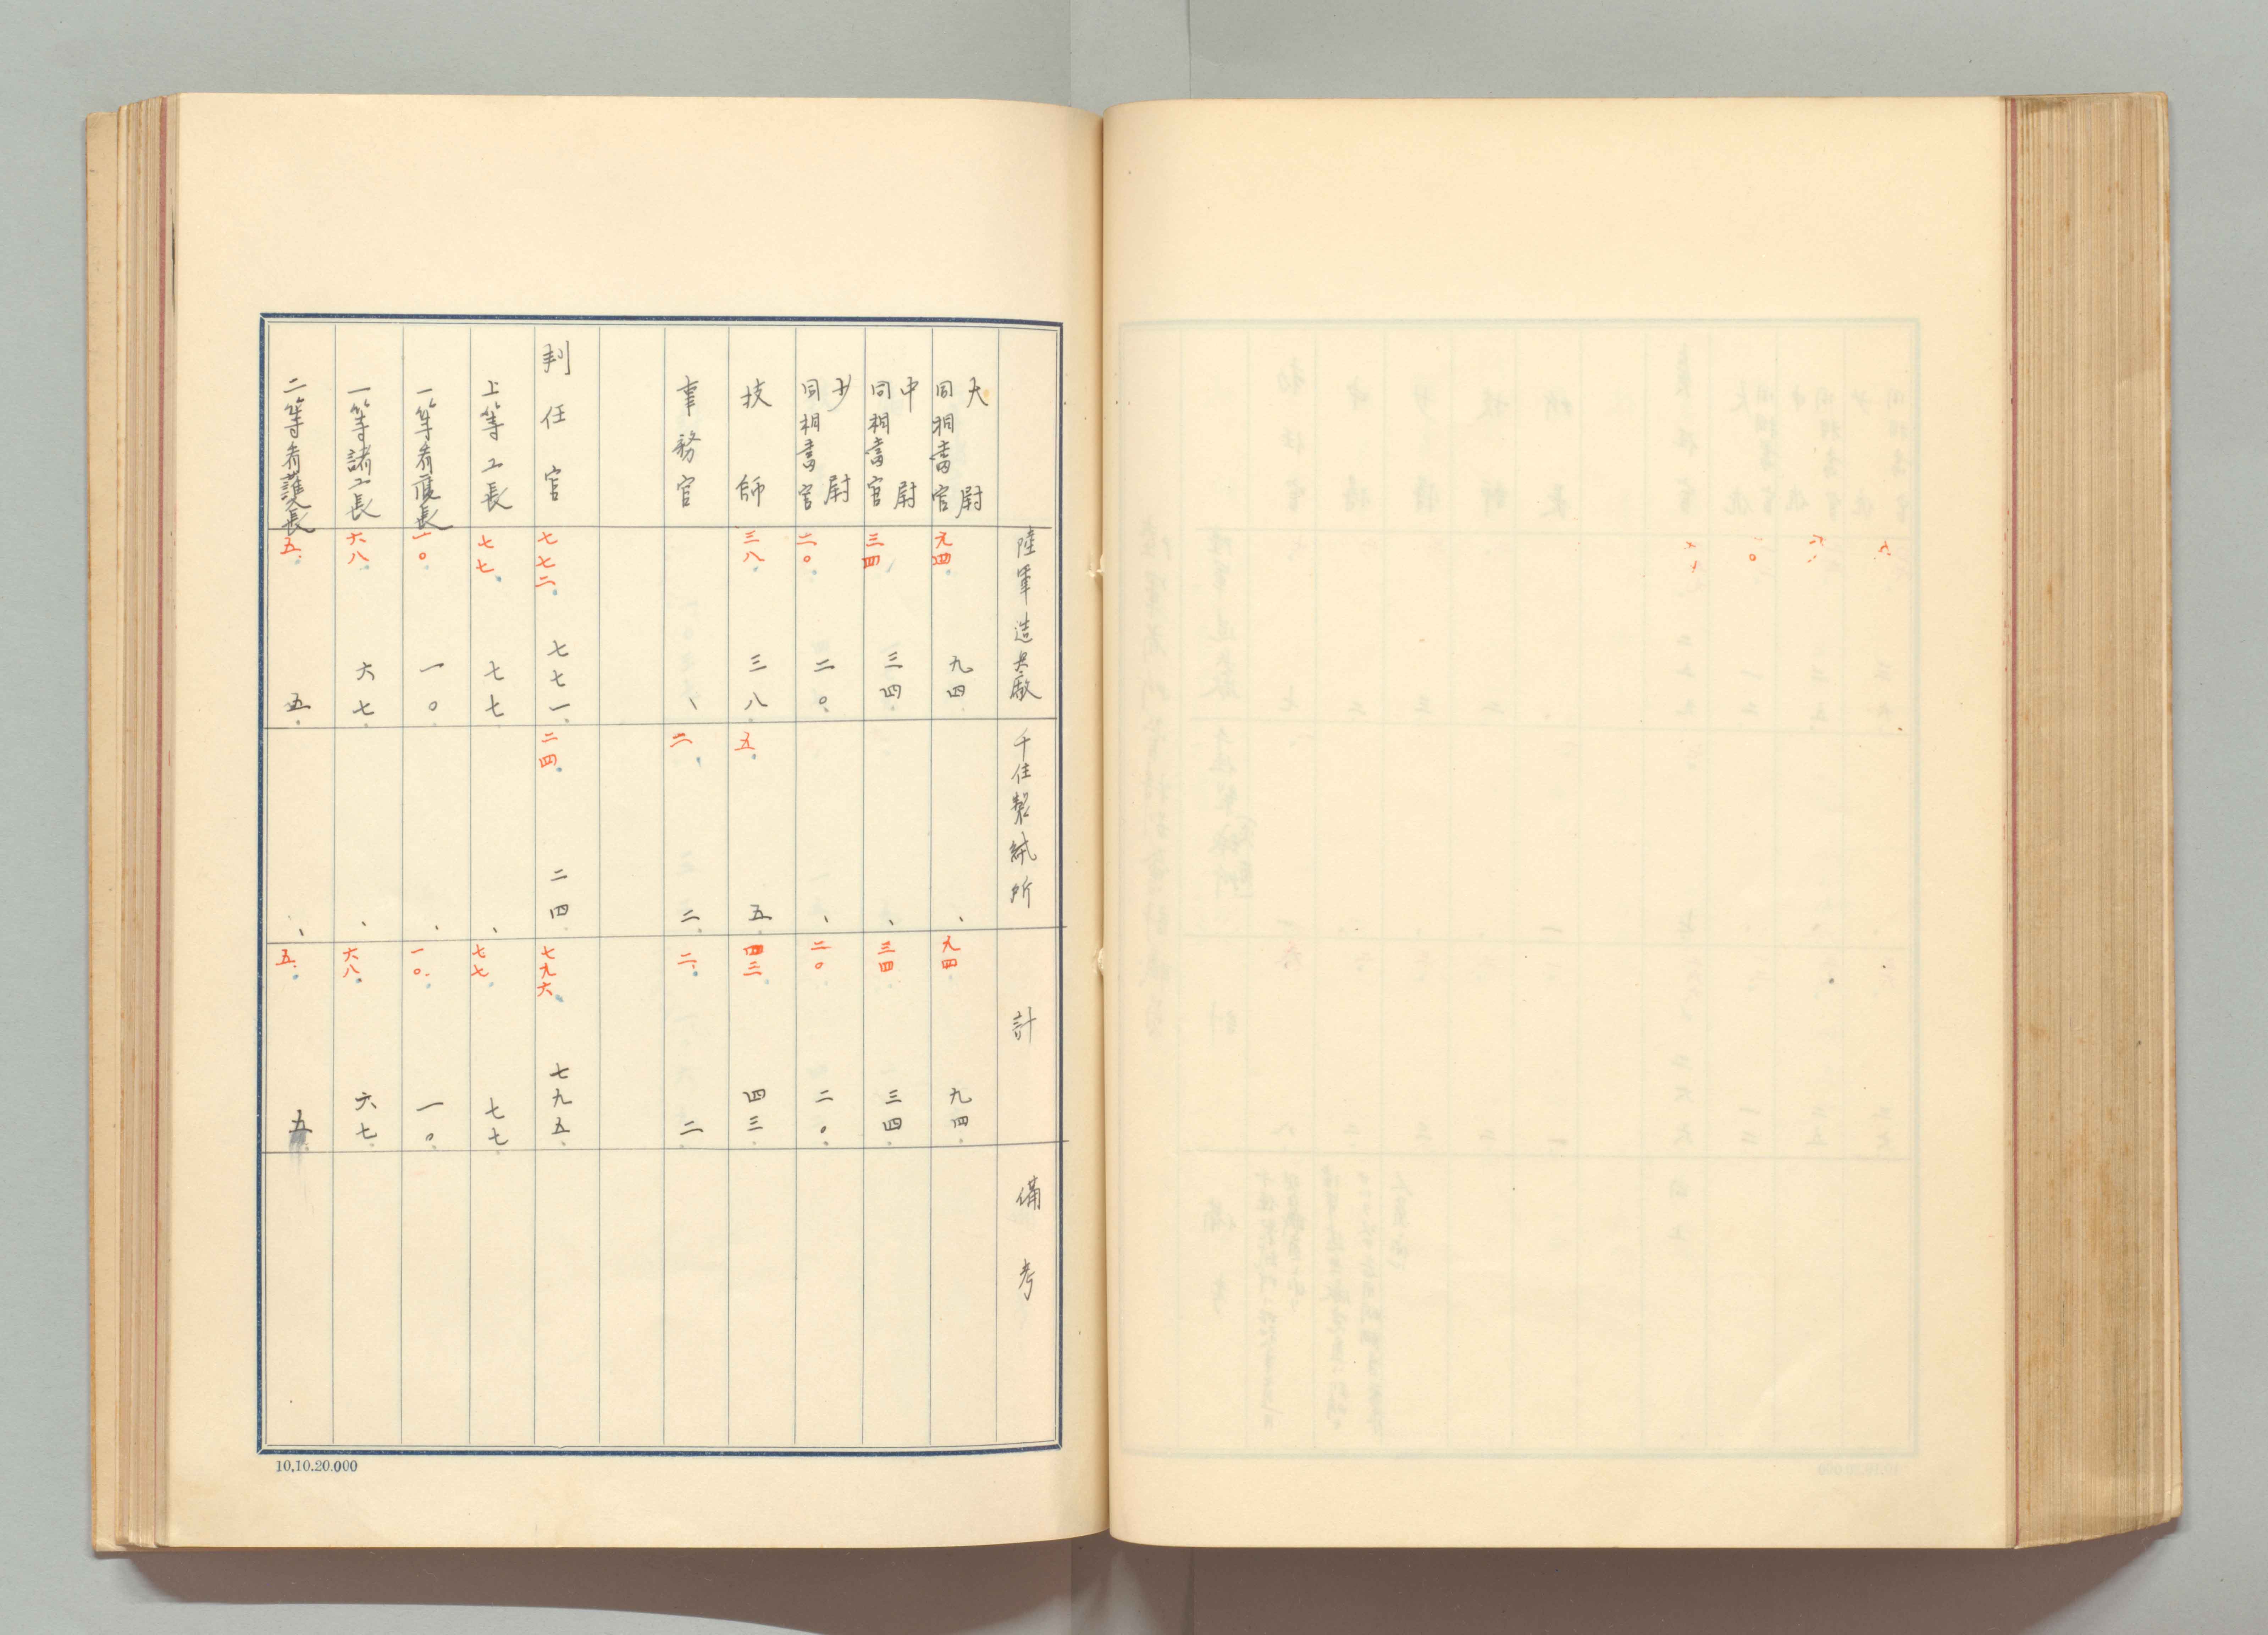 陸軍造兵廠
千住製絨所
計
備考
大尉
同相当官
九四
九四
九四
九四
中尉
同相当官
三四
三四
三四
三四
少尉
同相当官
二〇
二〇
二〇
二〇
技師
三八
三八
五
五
四三
四三
事務官
二
二
二
二
判任官
七七二
七七一
二四
二四
七九六
七九五
上等工長
七七
七七
七七
七七
一等看護長
一〇
一〇
一〇
一〇
一等諸工長
六八
六七
六八
六七
二等看護長
五
五
五
五
10.10.20.000